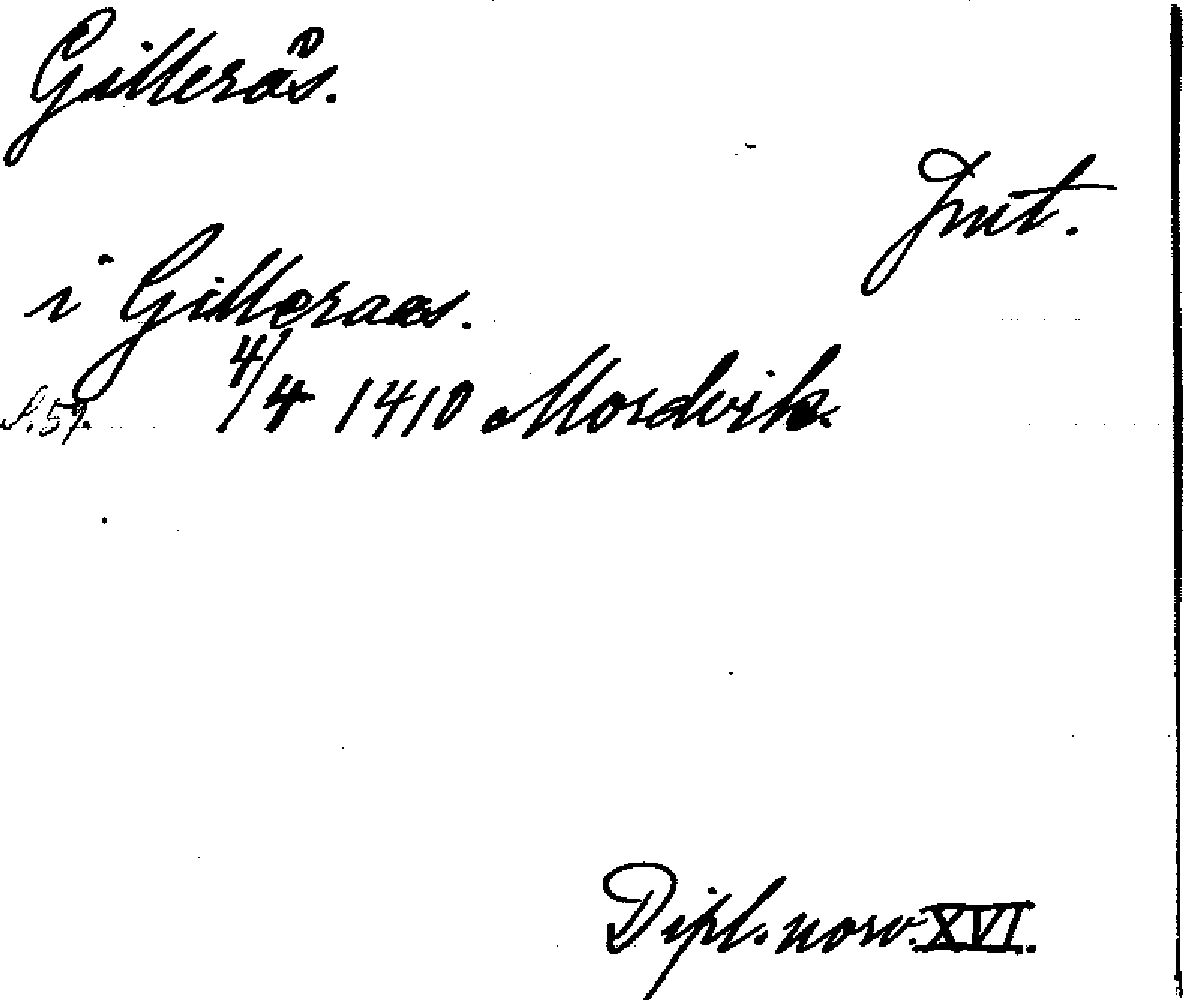 Gillerås.
Jmt.
i Gilleraas.
S. 57. 4/4 1410 Mordvik.
Dipl. norv. XVI.